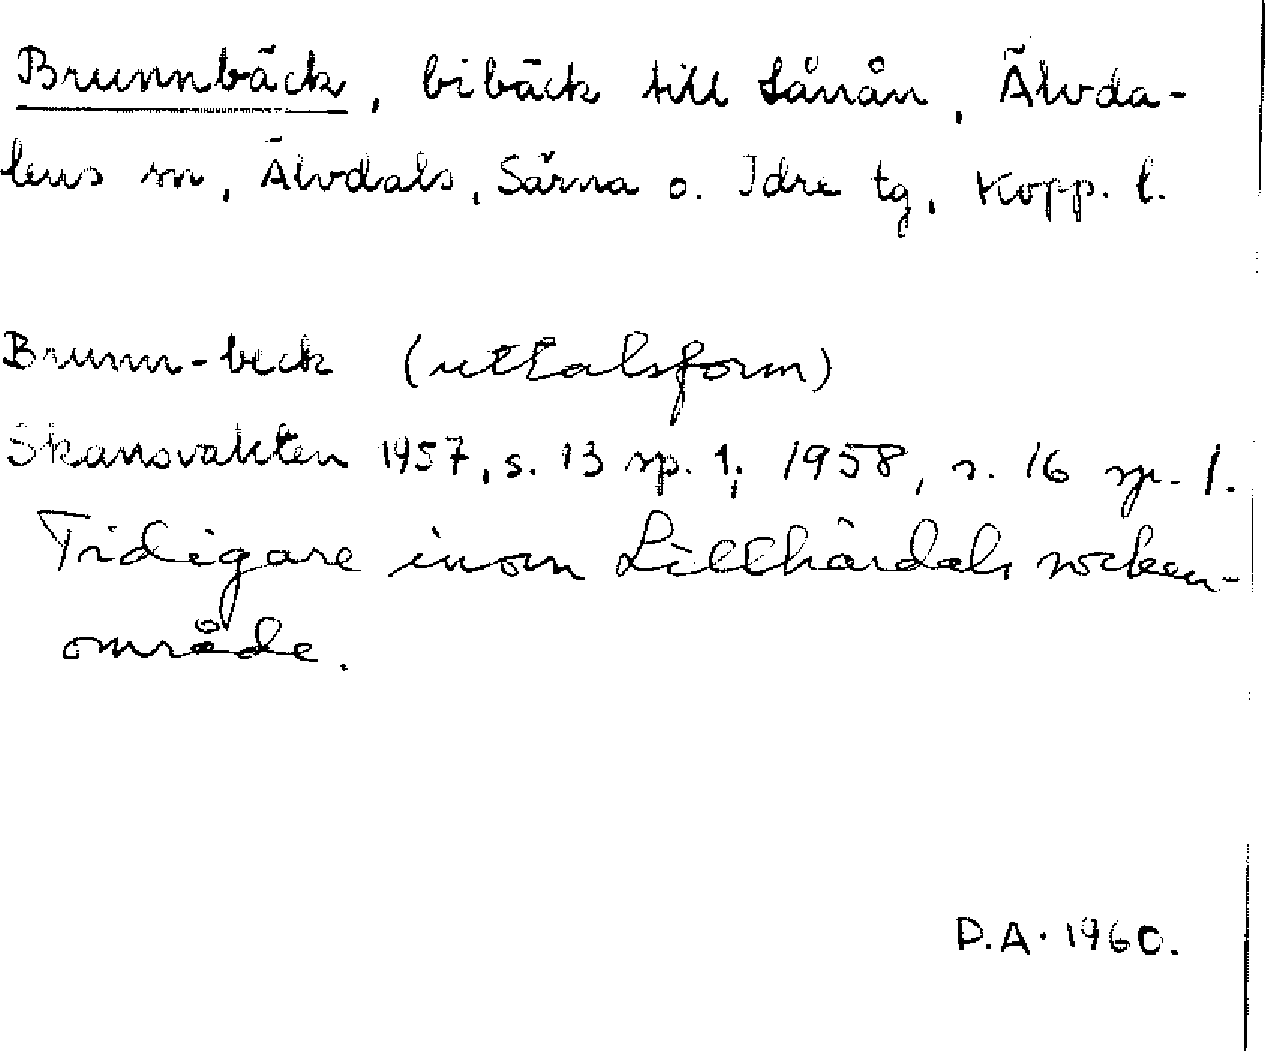 Brunnbäck, bibäck till Lånån, Älvda-
lens sn, Älvdals, Särna o. Idre tg, Kopp. l.
Brunn-beck (uttalsform)
Skansvakten 1957, s. 13 sp. 1; 1958, s. 16 sp. 1.
Tidigare inom Lillhärdals socken-
område.
D.A. 1960.